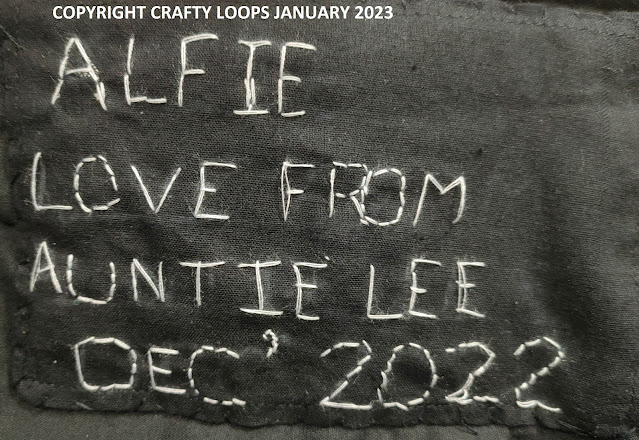 COPYRIGHT CRAFTY LOOPS JANUARY 2023
ALFIE
LOVE FROM
AUNTIE LEE
DEC' 2022